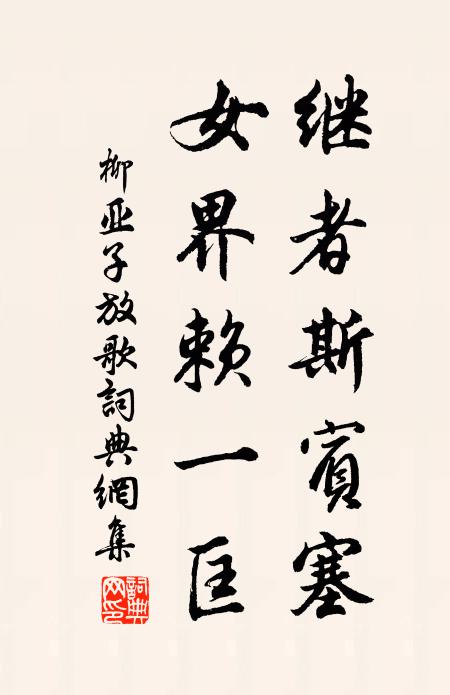 继者斯賓塞
女界赖一匡
柳亚子放歌詞典網集
詞典网印